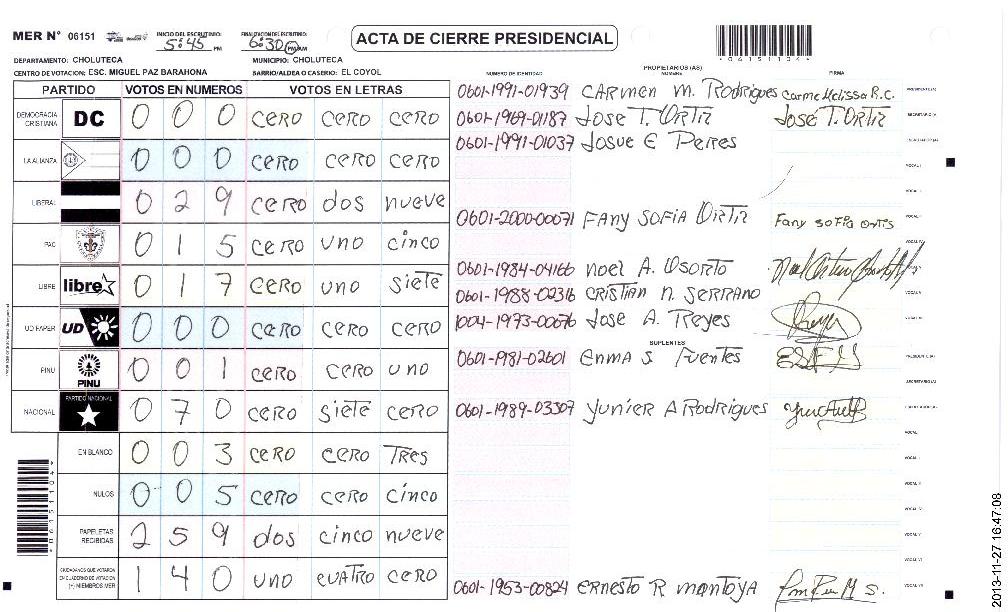 MER N° 06151 INICIO DEL ESCRUTINIO: 5:45 PM FINALIZACION DEL ESCRUTINIO: 6:30 PM AM ACTA DE CIERRE PRESIDENCIAL *06151104*
DEPARTAMENTO: CHOLUTECA MUNICIPIO: CHOLUTECA
CENTRO DE VOTACION: ESC. MIGUEL PAZ BARAHONA BARRIO/ALDEA O CASERIO: EL COYOL
PARTIDO VOTOS EN NUMEROS VOTOS EN LETRAS
DEMOCRACIA CRISTIANA DC 0 0 0 cero cero cero
LA ALIANZA 0 0 0 cero cero cero
LIBERAL 0 2 9 cero dos nueve
PAC 0 1 5 cero uno cinco
LIBRE libre 0 1 7 cero uno siete
UD FAPER UD 0 0 0 cero cero cero
PINU PINU 0 0 1 cero cero uno
NACIONAL PARTIDO NACIONAL 0 7 0 cero siete cero
EN BLANCO 0 0 3 cero cero Tres
NULOS 0 0 5 cero cero cinco
PAPELETAS RECIBIDAS 2 5 9 dos cinco nueve
CIUDADANOS QUE VOTARON EN CUADERNO DE VOTACION (+) MIEMBROS MER 1 4 0 uno cuatro cero
*06151104*
PROPIETARIOS (AS)
NUMERO DE IDENTIDAD NOMBRE FIRMA
0601-1991-01939 CARMEN M. Rodrigues Carme Melissa R.C. PRESIDENTE(A)
0601-1969-01187 Jose T. ORTIZ Jose T. ORTIZ SECRETARIO(A)
0601-1991-01037 Josue E Perres
VOCAL I
0601-2000-00071 FANY SOFIA ORTIZ Fany sofia ortis
0601-1984-04166 Noel A. Osorto
0601-1988-02316 CRISTIAN N. SERRANO
1004-1973-00076 Jose A. Reyes
SUPLENTES
0601-1981-02601 Enma S. Fuentes PRESIDENTE(A)
SECRETARIO(A)
0601-1989-03307 Yunier A Rodrigues
VOCAL I
0601-1953-00824 ERNESTO R MONTOYA
2013-11-27 16:47:08